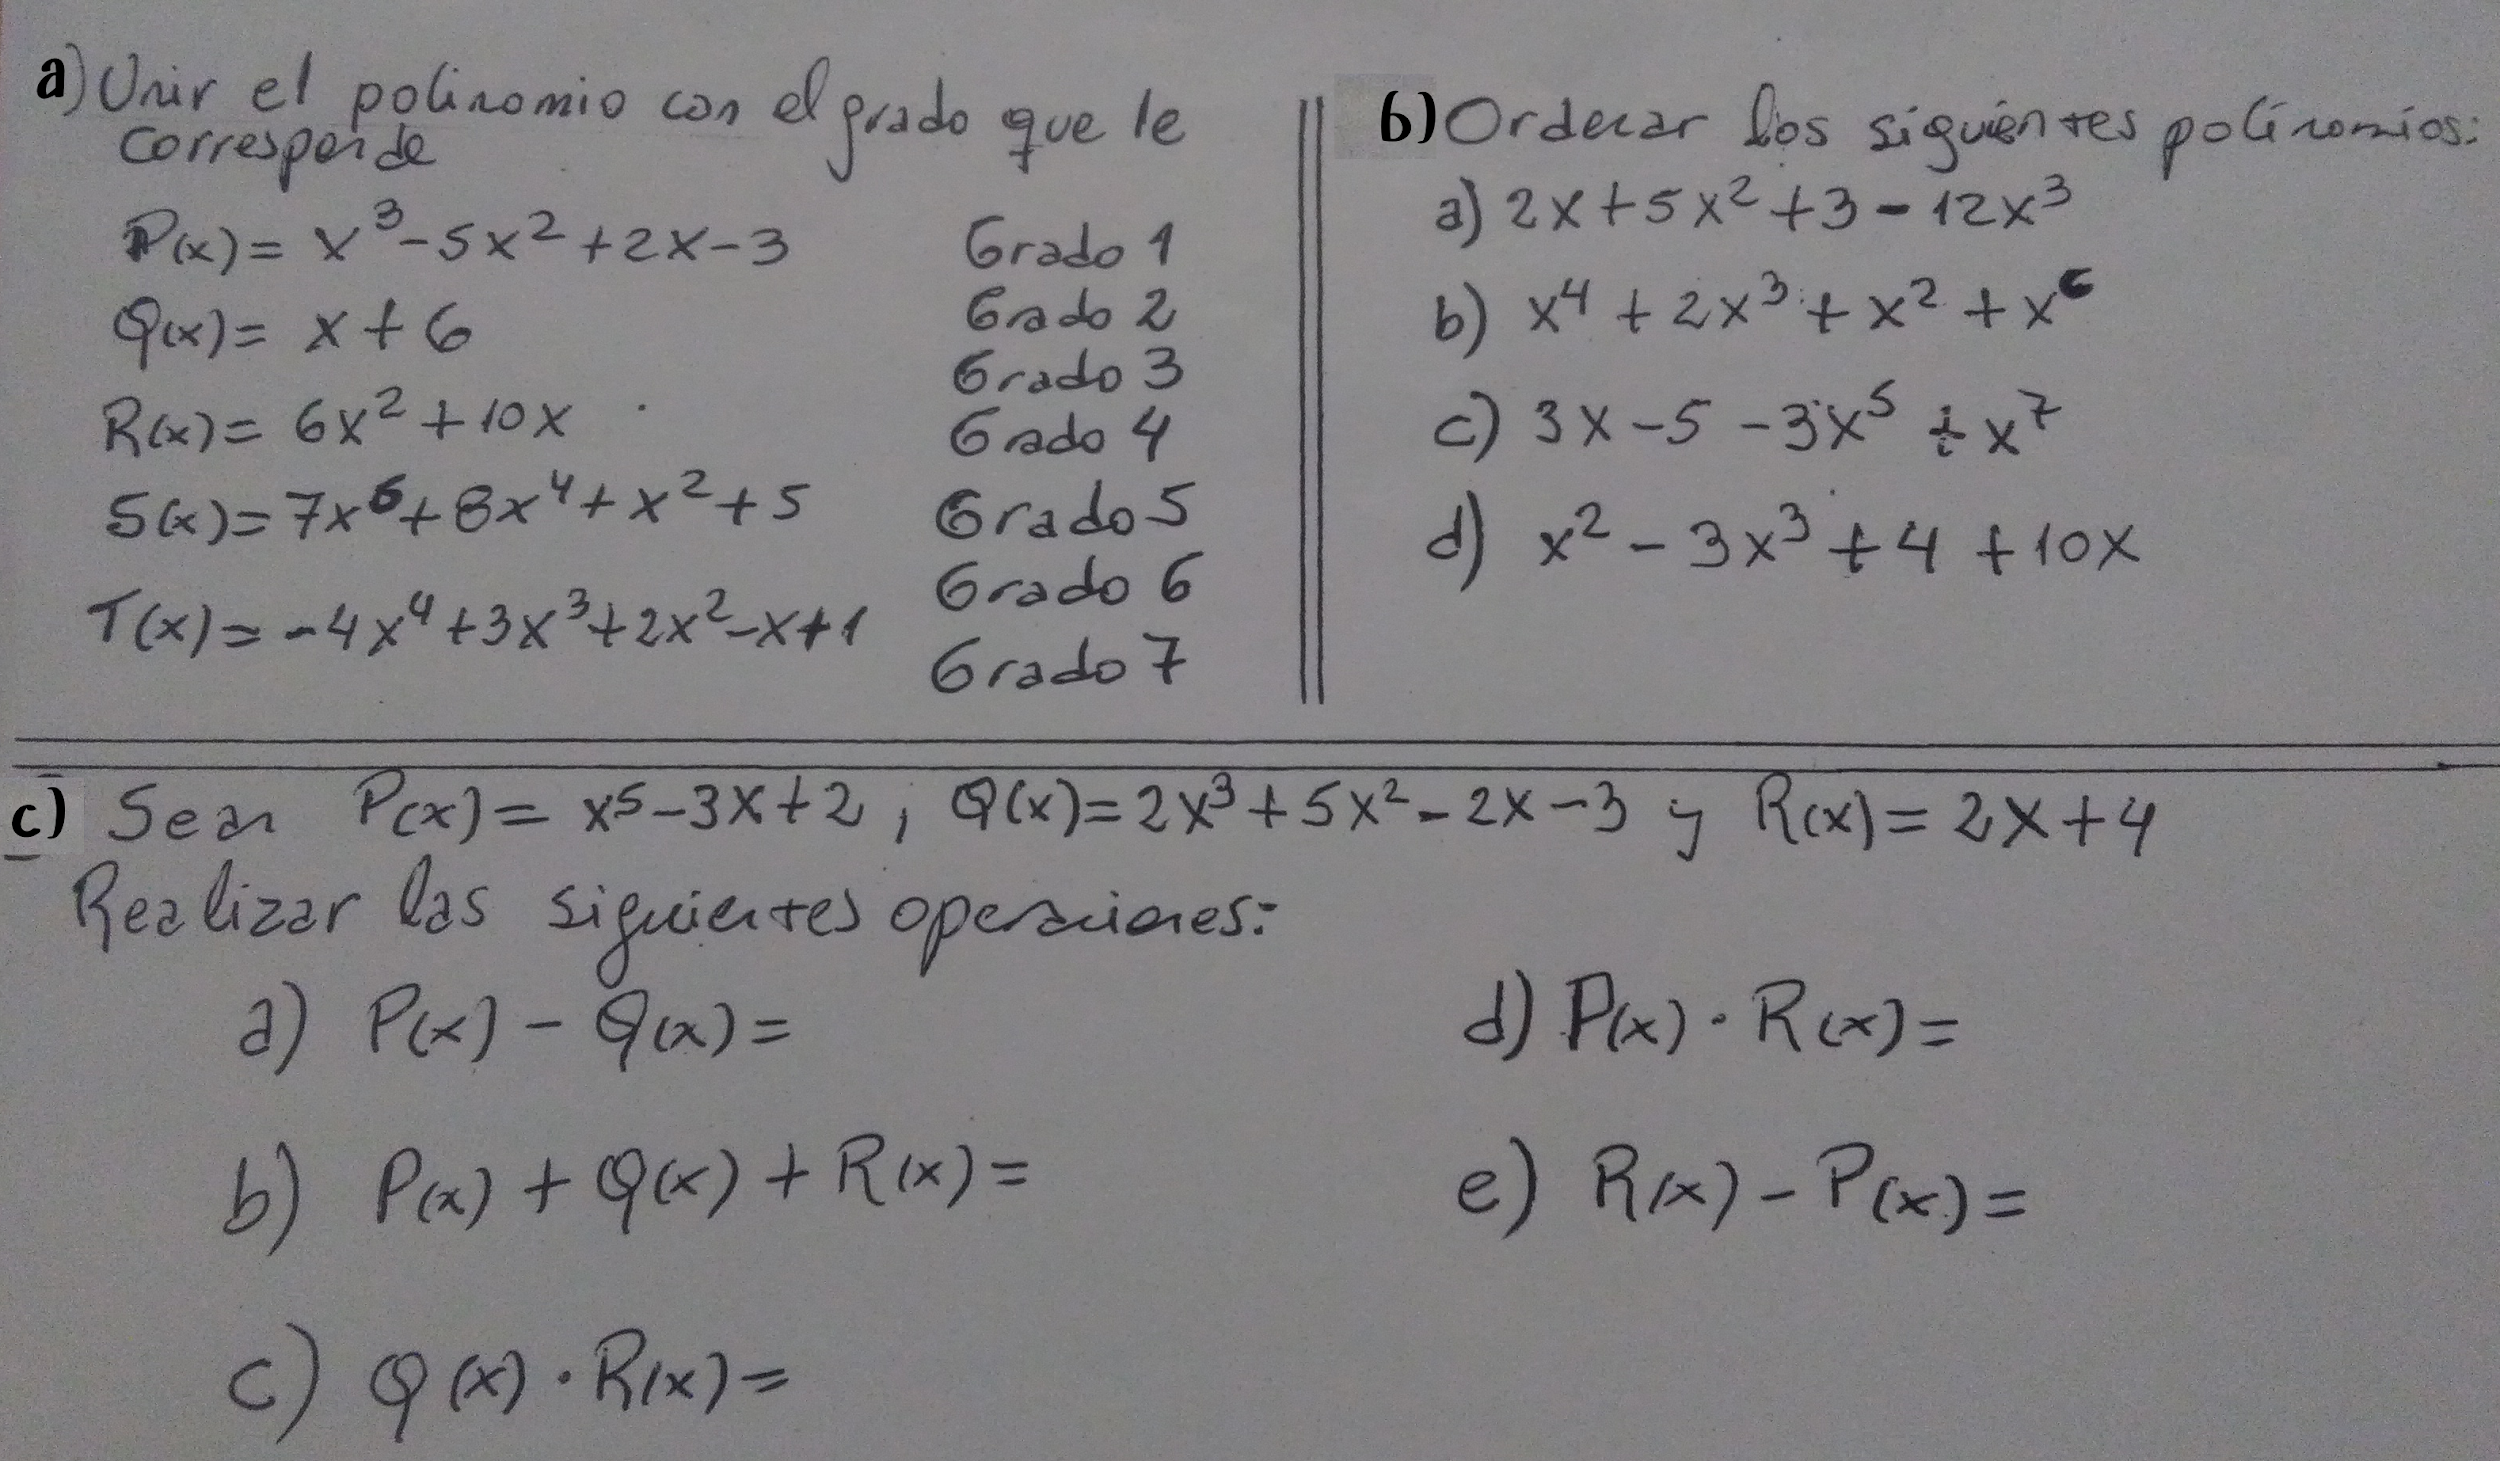 a) Unir el polinomio con el grado que le
corresponde
P(x) = x³ - 5x² + 2x - 3
Q(x) = x + 6
R(x) = 6x² + 10x
S(x) = 7x⁶ + 8x⁴ + x² + 5
T(x) = -4x⁴ + 3x³ + 2x² - x + 1
Grado 1
Grado 2
Grado 3
Grado 4
Grado 5
Grado 6
Grado 7
b) Ordenar los siguientes polinomios:
a) 2x + 5x² + 3 - 12x³
b) x⁴ + 2x³ + x² + x⁶
c) 3x - 5 - 3x⁵ + x⁷
d) x² - 3x³ + 4 + 10x
c) Sean P(x) = x⁵ - 3x + 2, Q(x) = 2x³ + 5x² - 2x - 3 y R(x) = 2x + 4
Realizar las siguientes operaciones:
a) P(x) - Q(x) =
b) P(x) + Q(x) + R(x) =
c) Q(x) · R(x) =
d) P(x) · R(x) =
e) R(x) - P(x) =